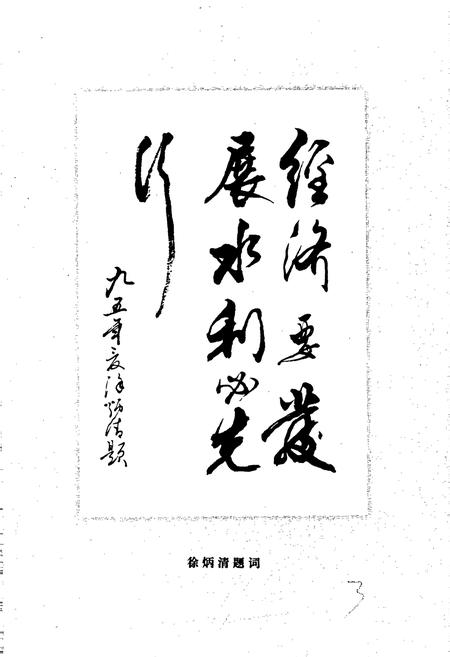 经济要发
展水利必先
行
九五年夏徐炳清题
徐炳清题词
3